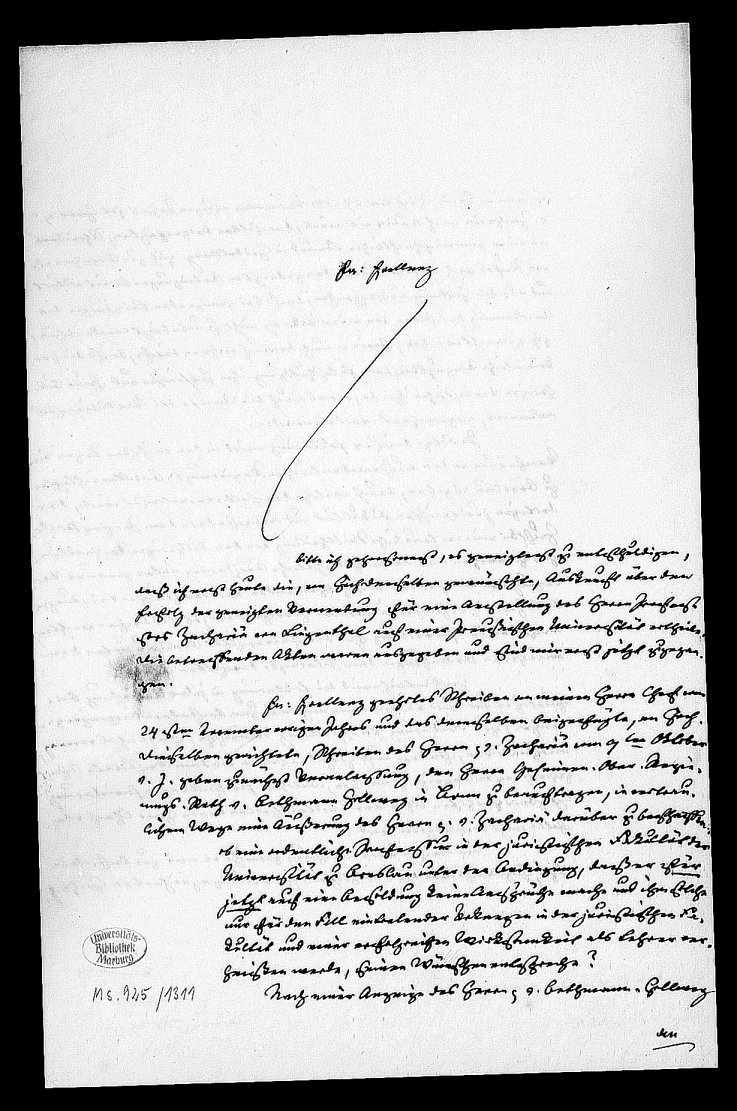 Ew: Excellenz
bitte ich gehorsamst, es geneigtest zu entschuldigen,
daß ich erst heute die, von Hochdenselben gewünschte, Auskunft über den
Erfolg der geneigten Verwendung für eine Anstellung des Herrn Professors
Zachariä von Lingenthal auf einer Preußischen Universität ertheile.
Die betreffenden Akten waren ausgegeben und sind mir erst jetzt zugegan-
gen.
Ew: Excellenz geehrtes Schreiben an meinen Herrn Chef vom
24 sten November vorigen Jahres und das demselben beigefügte, an Hoch-
dieselben gerichtete, Schreiben des Herrn v. Zachariä vom 9 ten Oktober
v. J. gaben zunächst Veranlassung, den Herrn Geheimen-Ober-Regie-
rungs-Rath v. Bethmann Hollweg in Bonn zu beauftragen, in vertrau-
lichem Wege eine Äußerung des Herrn v. Zachariä darüber zu beschaffen:
ob eine ordentliche Professur in der juristischen Fakultät der
Universität zu Breslau unter der Bedingung, daß er für
jetzt auf eine Besoldung keine Ansprüche mache und ihm solche
nur für den Fall eintretender Vakanzen in der juristischen Fa-
kultät und einer erfolgreichen Wirksamkeit als Lehrer ver-
heißen werde, seinen Wünschen entspreche?
Nach einer Anzeige des Herrn v. Bethmann-Hollweg
den
Universitäts-
Bibliothek
Marburg
Ms. 925/1311